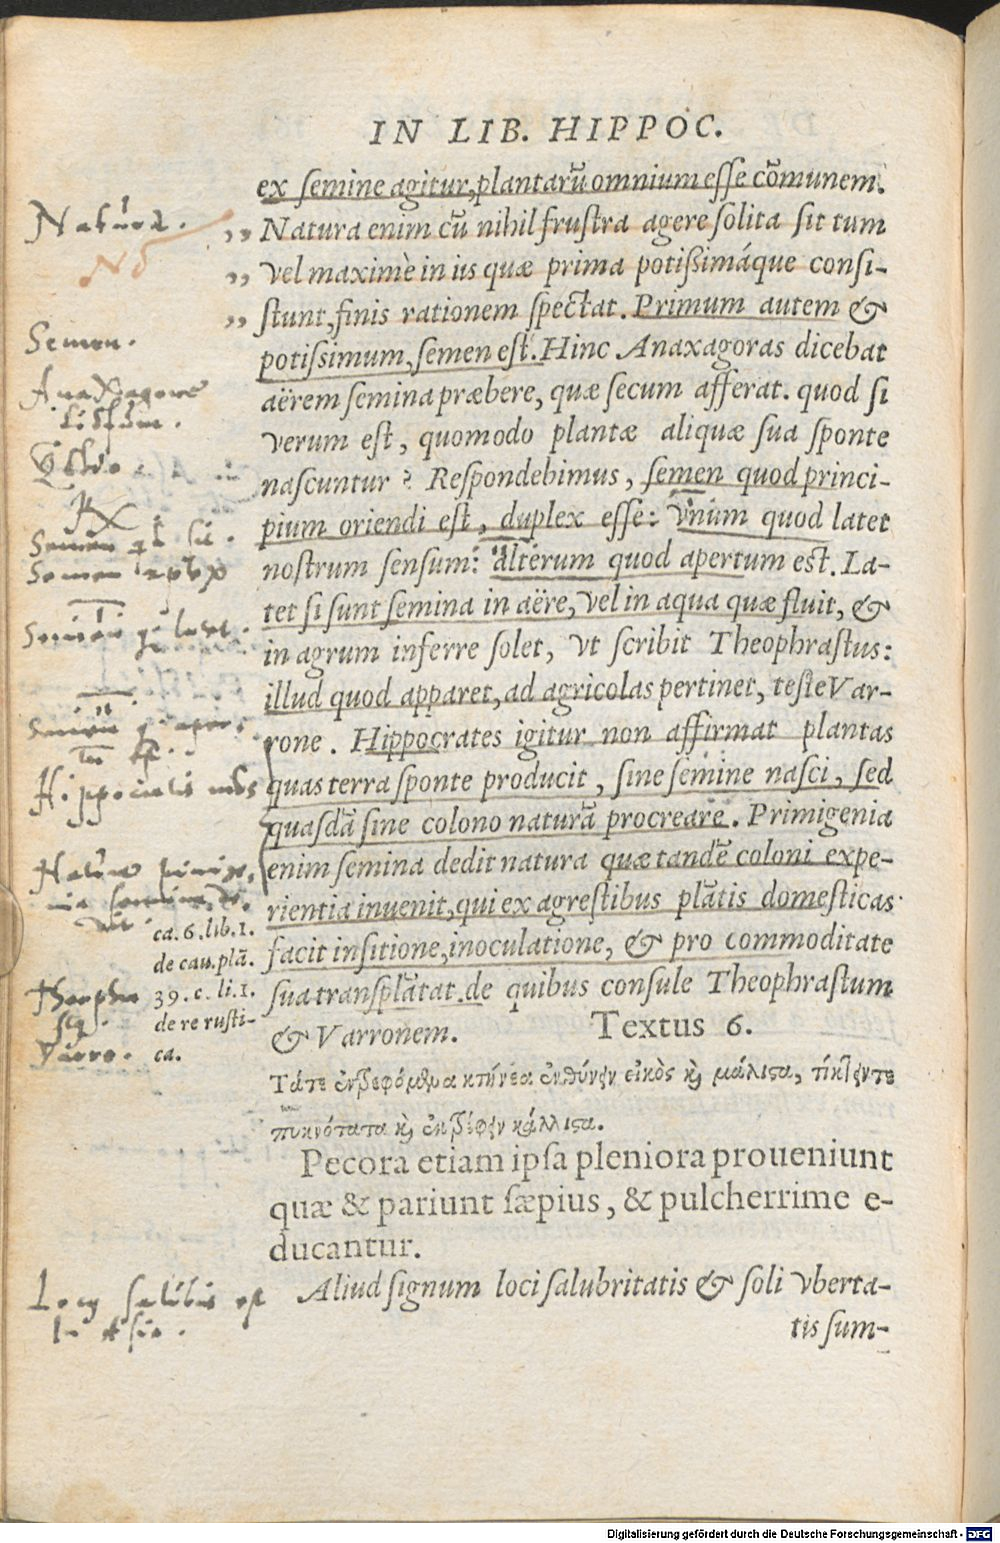 IN LIB. HIPPOC.
ex semine agitur, plantarũ omnium esse cõmunem.
Natura.
„ Natura enim cũ nihil frustra agere solita sit tum
„ vel maximè in iis quæ prima potißimáque consi-
„ stunt, finis rationem spectat. Primum autem &
Semen.
potissimum, semen est. Hinc Anaxagoras dicebat
aërem semina præbere, quæ secum afferat. quod si
verum est, quomodo plantæ aliquæ sua sponte
nascuntur? Respondebimus, semen quod princi-
pium oriendi est, duplex esse: vnum quod latet
nostrum sensum: alterum quod apertum est. La-
tet si sunt semina in aëre, vel in aqua quæ fluit, &
in agrum inferre solet, vt scribit Theophrastus:
illud quod apparet, ad agricolas pertinet, teste Var-
rone. Hippocrates igitur non affirmat plantas
quas terra sponte producit, sine semine nasci, sed
quasdã sine colono naturã procreare. Primigenia
enim semina dedit natura quæ tandẽ coloni expe-
rientia inuenit, qui ex agrestibus plãtis domesticas
ca. 6. lib. 1.
de cau. plã.
facit insitione, inoculatione, & pro commoditate
39. c. li. 1.
de re rusti-
ca.
sua transplãtat. de quibus consule Theophrastum
& Varronem. Textus 6.
Varro.
Τάτε ἐντρεφόμθμα κτήνεα ἐυθύνην εἰκὸς κὴ μάλιςα, τίκτην τε
πυκνότατα κὴ ἐκτρέφην κάλλιςα.
Pecora etiam ipsa pleniora proueniunt
quæ & pariunt sæpius, & pulcherrime e-
ducantur.
Aliud signum loci salubritatis & soli vberta-
tis sum-
Digitalisierung gefördert durch die Deutsche Forschungsgemeinschaft - DFG